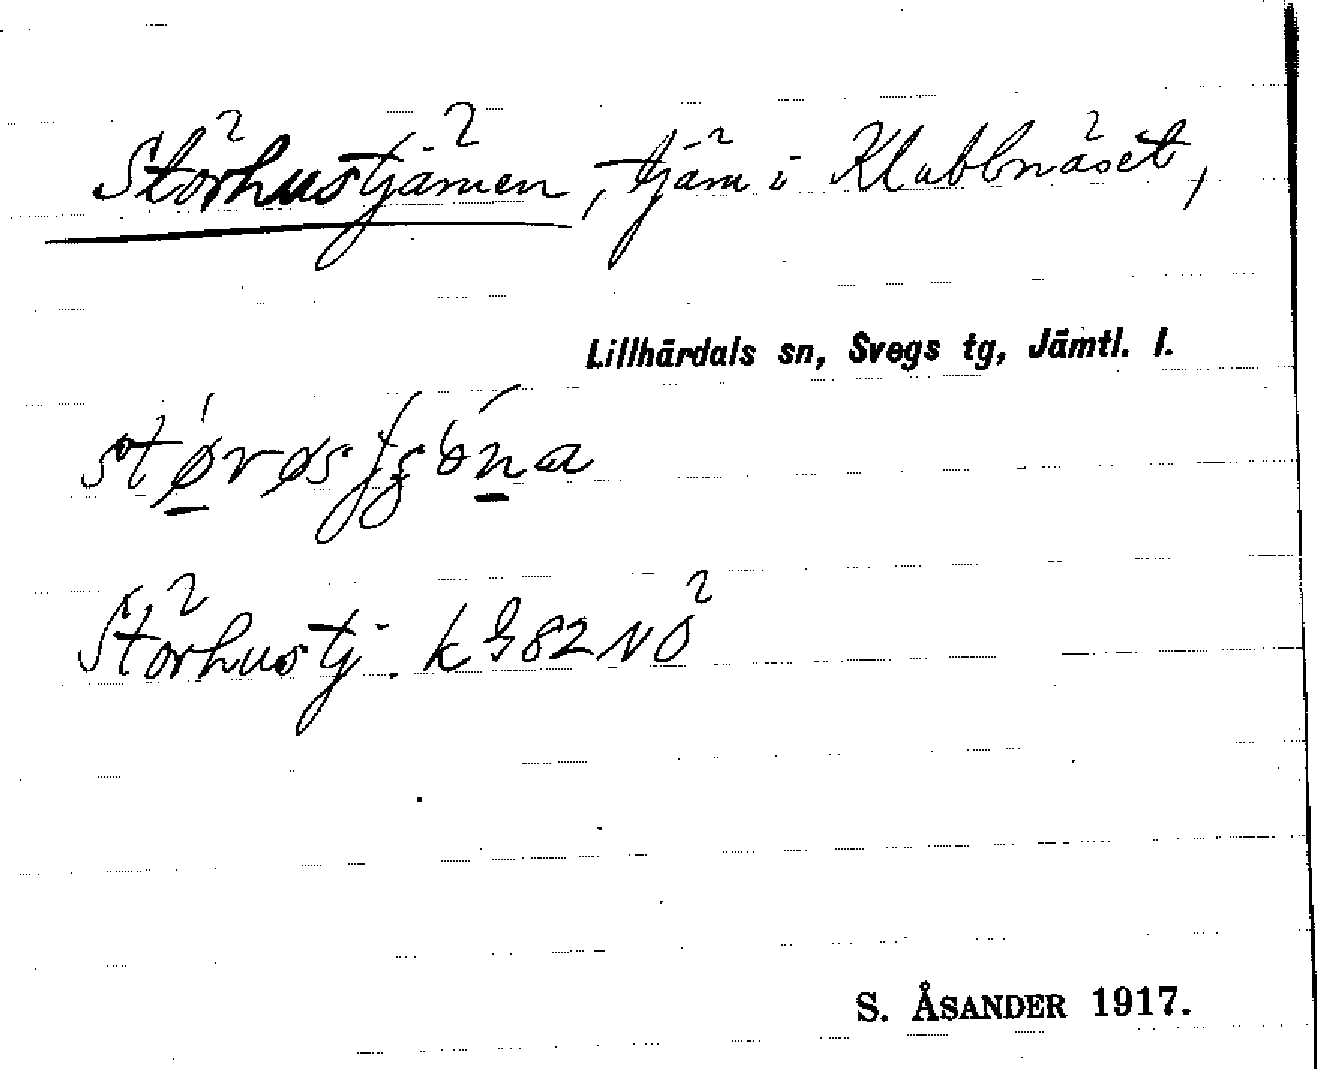 Störhustjärnen, tjärn i Klubbnäset,
Lillhärdals sn, Svegs tg, Jämtl. l.
Störhustj. k 982 NÖ
S. ÅSANDER 1917.